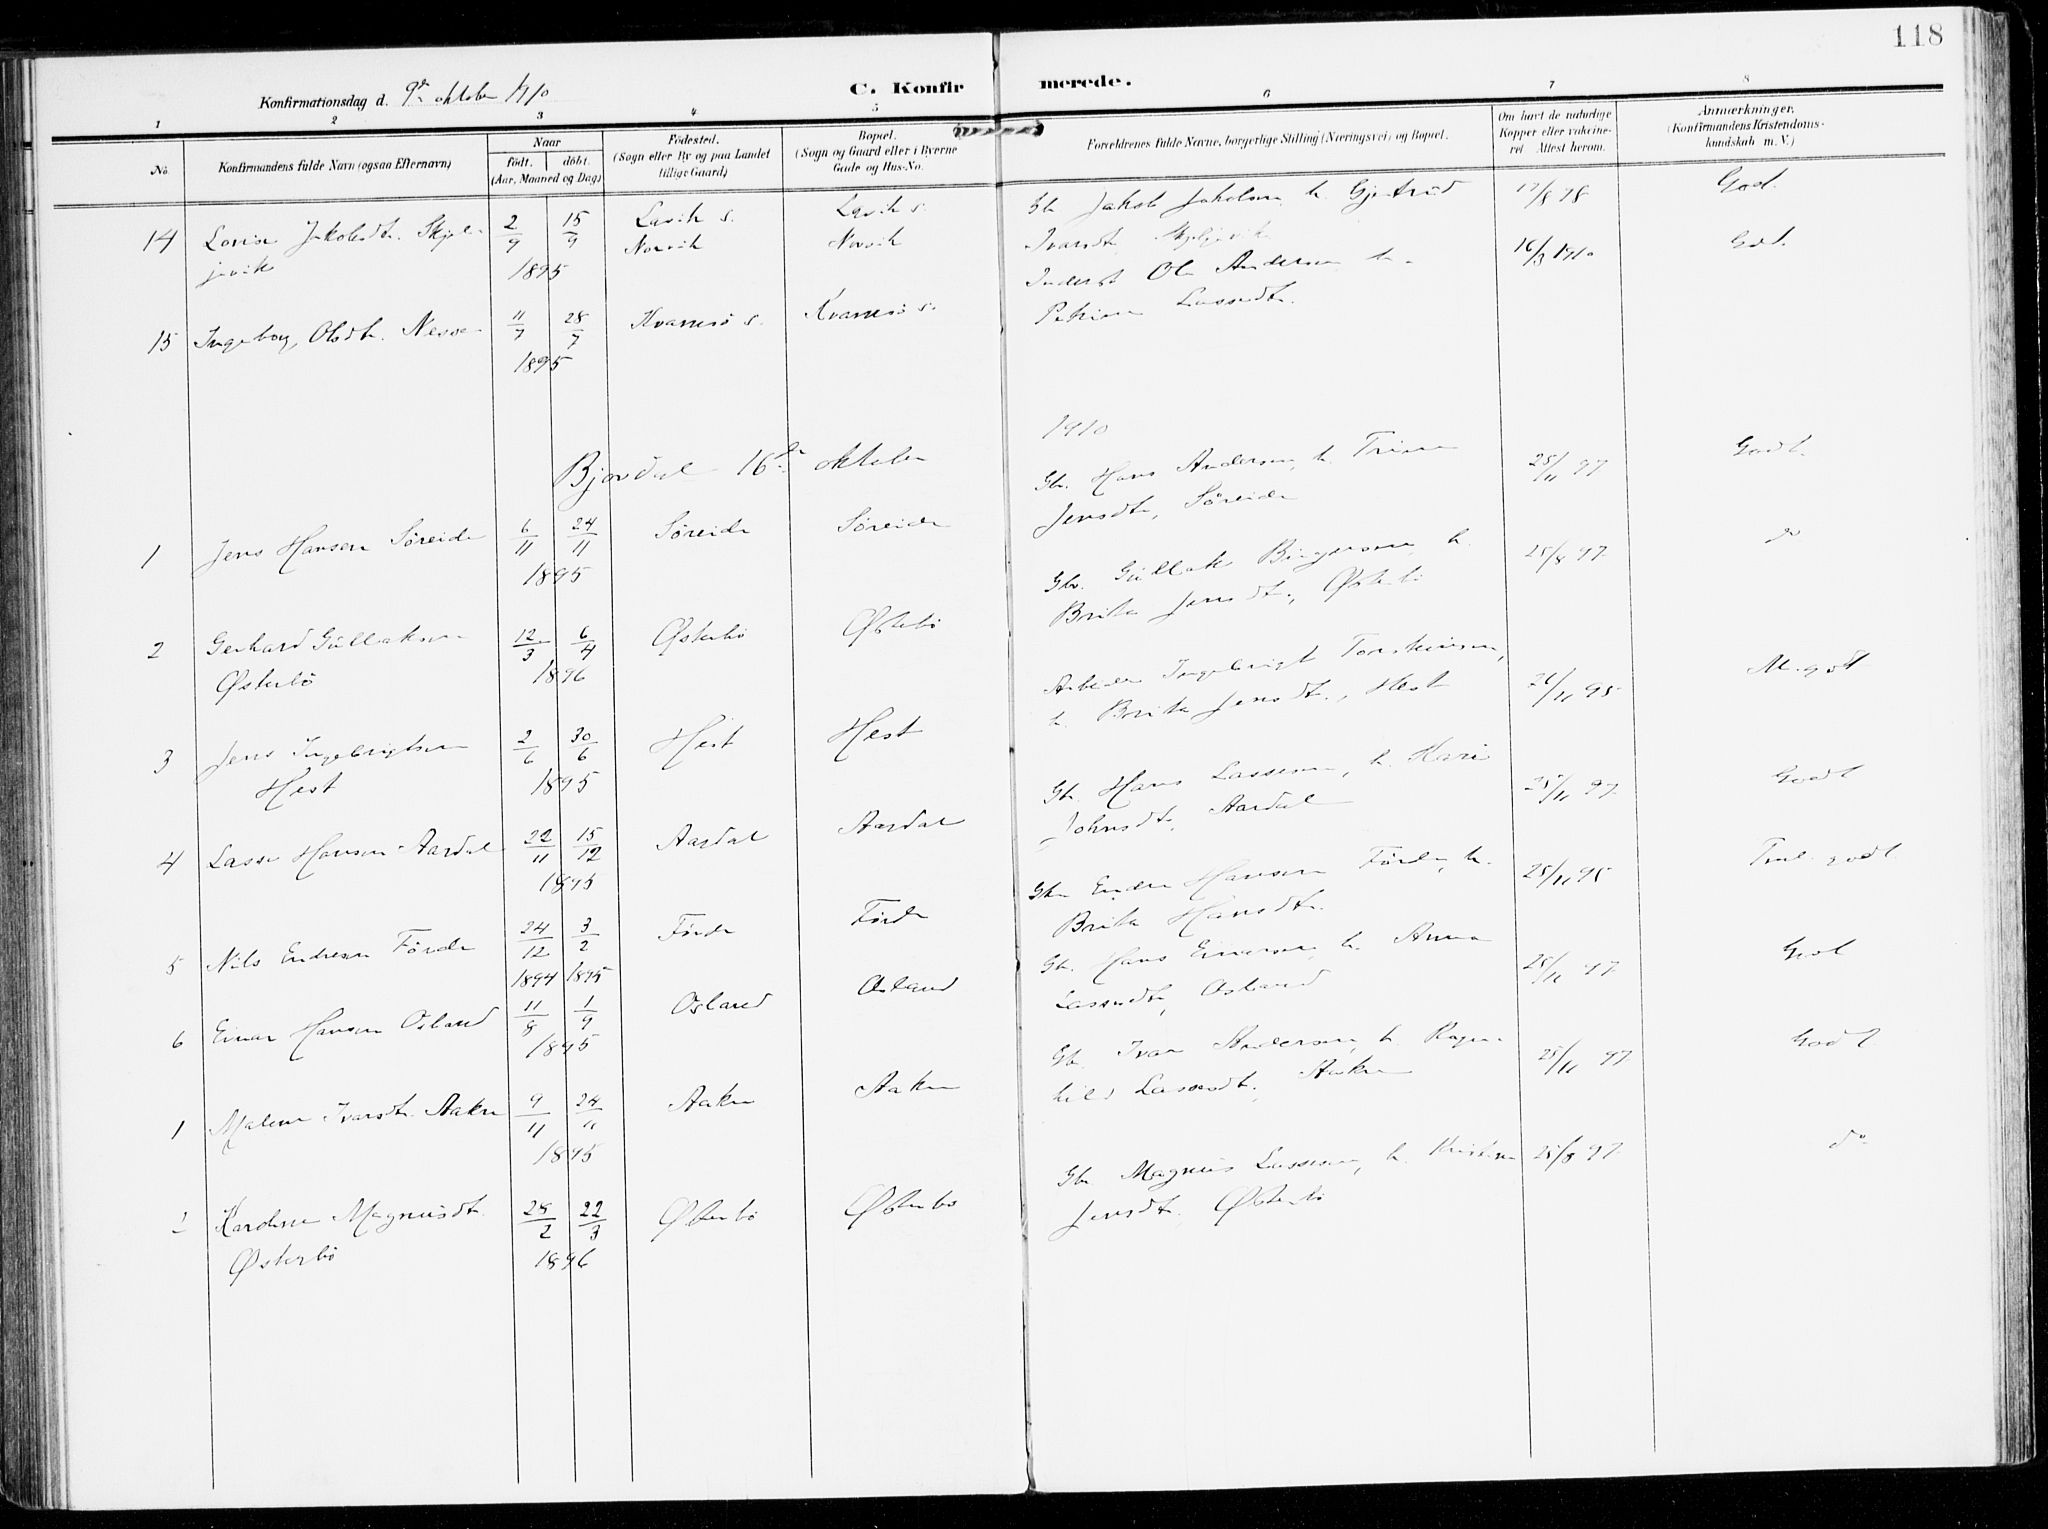 118
Konfirmationsdag d. 9de oktober 1910
C. Konfirmerede.
1 2 3 4 5 6 7 8
No.
Konfirmandens fulde Navn (ogsaa Efternavn)
Naar
født. døbt.
(Aar, Maaned og Dag)
Fødested.
(Sogn eller By og paa Landet
tillige Gaard)
Bopæl.
(Sogn og Gaard eller i Byerne
Gade og Hus-No.
Forældrenes fulde Navne, borgerlige Stilling (Næringsvei) og Bopæl.
Om havt de naturlige
Kopper eller vakcine-
ret Attest herom.
Anmærkninger.
(Konfirmandens Kristendoms-
kundskab m. V.)
14 Lovise Jakobsdtr. Skjel- 2/9 15/9 Lavik s. Lavik s. Gb. Jakob Jakobsen, h. Gjertrud 17/8 98 Godt.
jevik 1895 Norvik Norvik Ivarsdtr. Skjeljevik
15 Ingeborg Olsdtr. Nesse 11/7 28/7 Kvamsö s. Kvamsö s. Inderst Ole Andersen h. 16/3 1910 Godt.
1895 Petrine Lassedtr.
Bjordal 16de oktober 1910
1 Jens Hansen Söreide 6/11 24/11 Söreide Söreide Gb. Hans Andersen, h. Trine 25/11 97 Godt.
1895 Jensdtr., Söreide
2 Gerhard Gullaksen 12/3 6/4 Østerbö Østebö Gb. Gullak Birgersen, h. 25/8 97. do
Østerbö 1896 Brita Jensdtr., Østerbö
3 Jens Ingebrigtsen 2/6 30/6 Hest Hest Arbeider Ingebrigt Torsteinsen, 26/11 95 M. godt
Hest 1895 h. Brita Jensdtr., Hest
4 Lasse Hansen Aardal 22/11 15/12 Aardal Aardal Gb. Hans Lassesen, h. Kari 25/11 97. Godt
1895 Johnsdtr., Aardal
5 Nils Endresen Förde 24/12 3/2 Förde Förde Gb. Endre Hansen Förde, h. 25/11 95 Tml. godt.
1894 1895 Brita Hansdtr.
6 Einar Hansen Osland 11/8 1/9 Osland Osland Gb. Hans Einarsen, h. Anna 25/11 97. Godt
1895 Lassedtr., Osland
1 Malene Ivarsdtr. Aakre 9/11 24/11 Aakre Aakre Gb. Ivar Andersen, h. Ragn- 25/11 97 Godt.
1895 hild Lassesdtr., Aakre
2 Karoline Magnusdtr. 28/2 22/3 Østerbö Østerbö Gb. Magnus Lassesen, h. Kristine 25/8 97. do
Østerbö 1896 Jensdtr. Østerbö